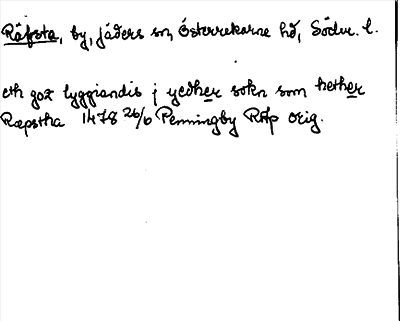 Räfsta, by, Jäders sn, Österrekarne hd, Söderm. l.
eth goz lyggiandis j yedher sokn som hether
Ræpstha 1478 26/6 Penningby RAp orig.